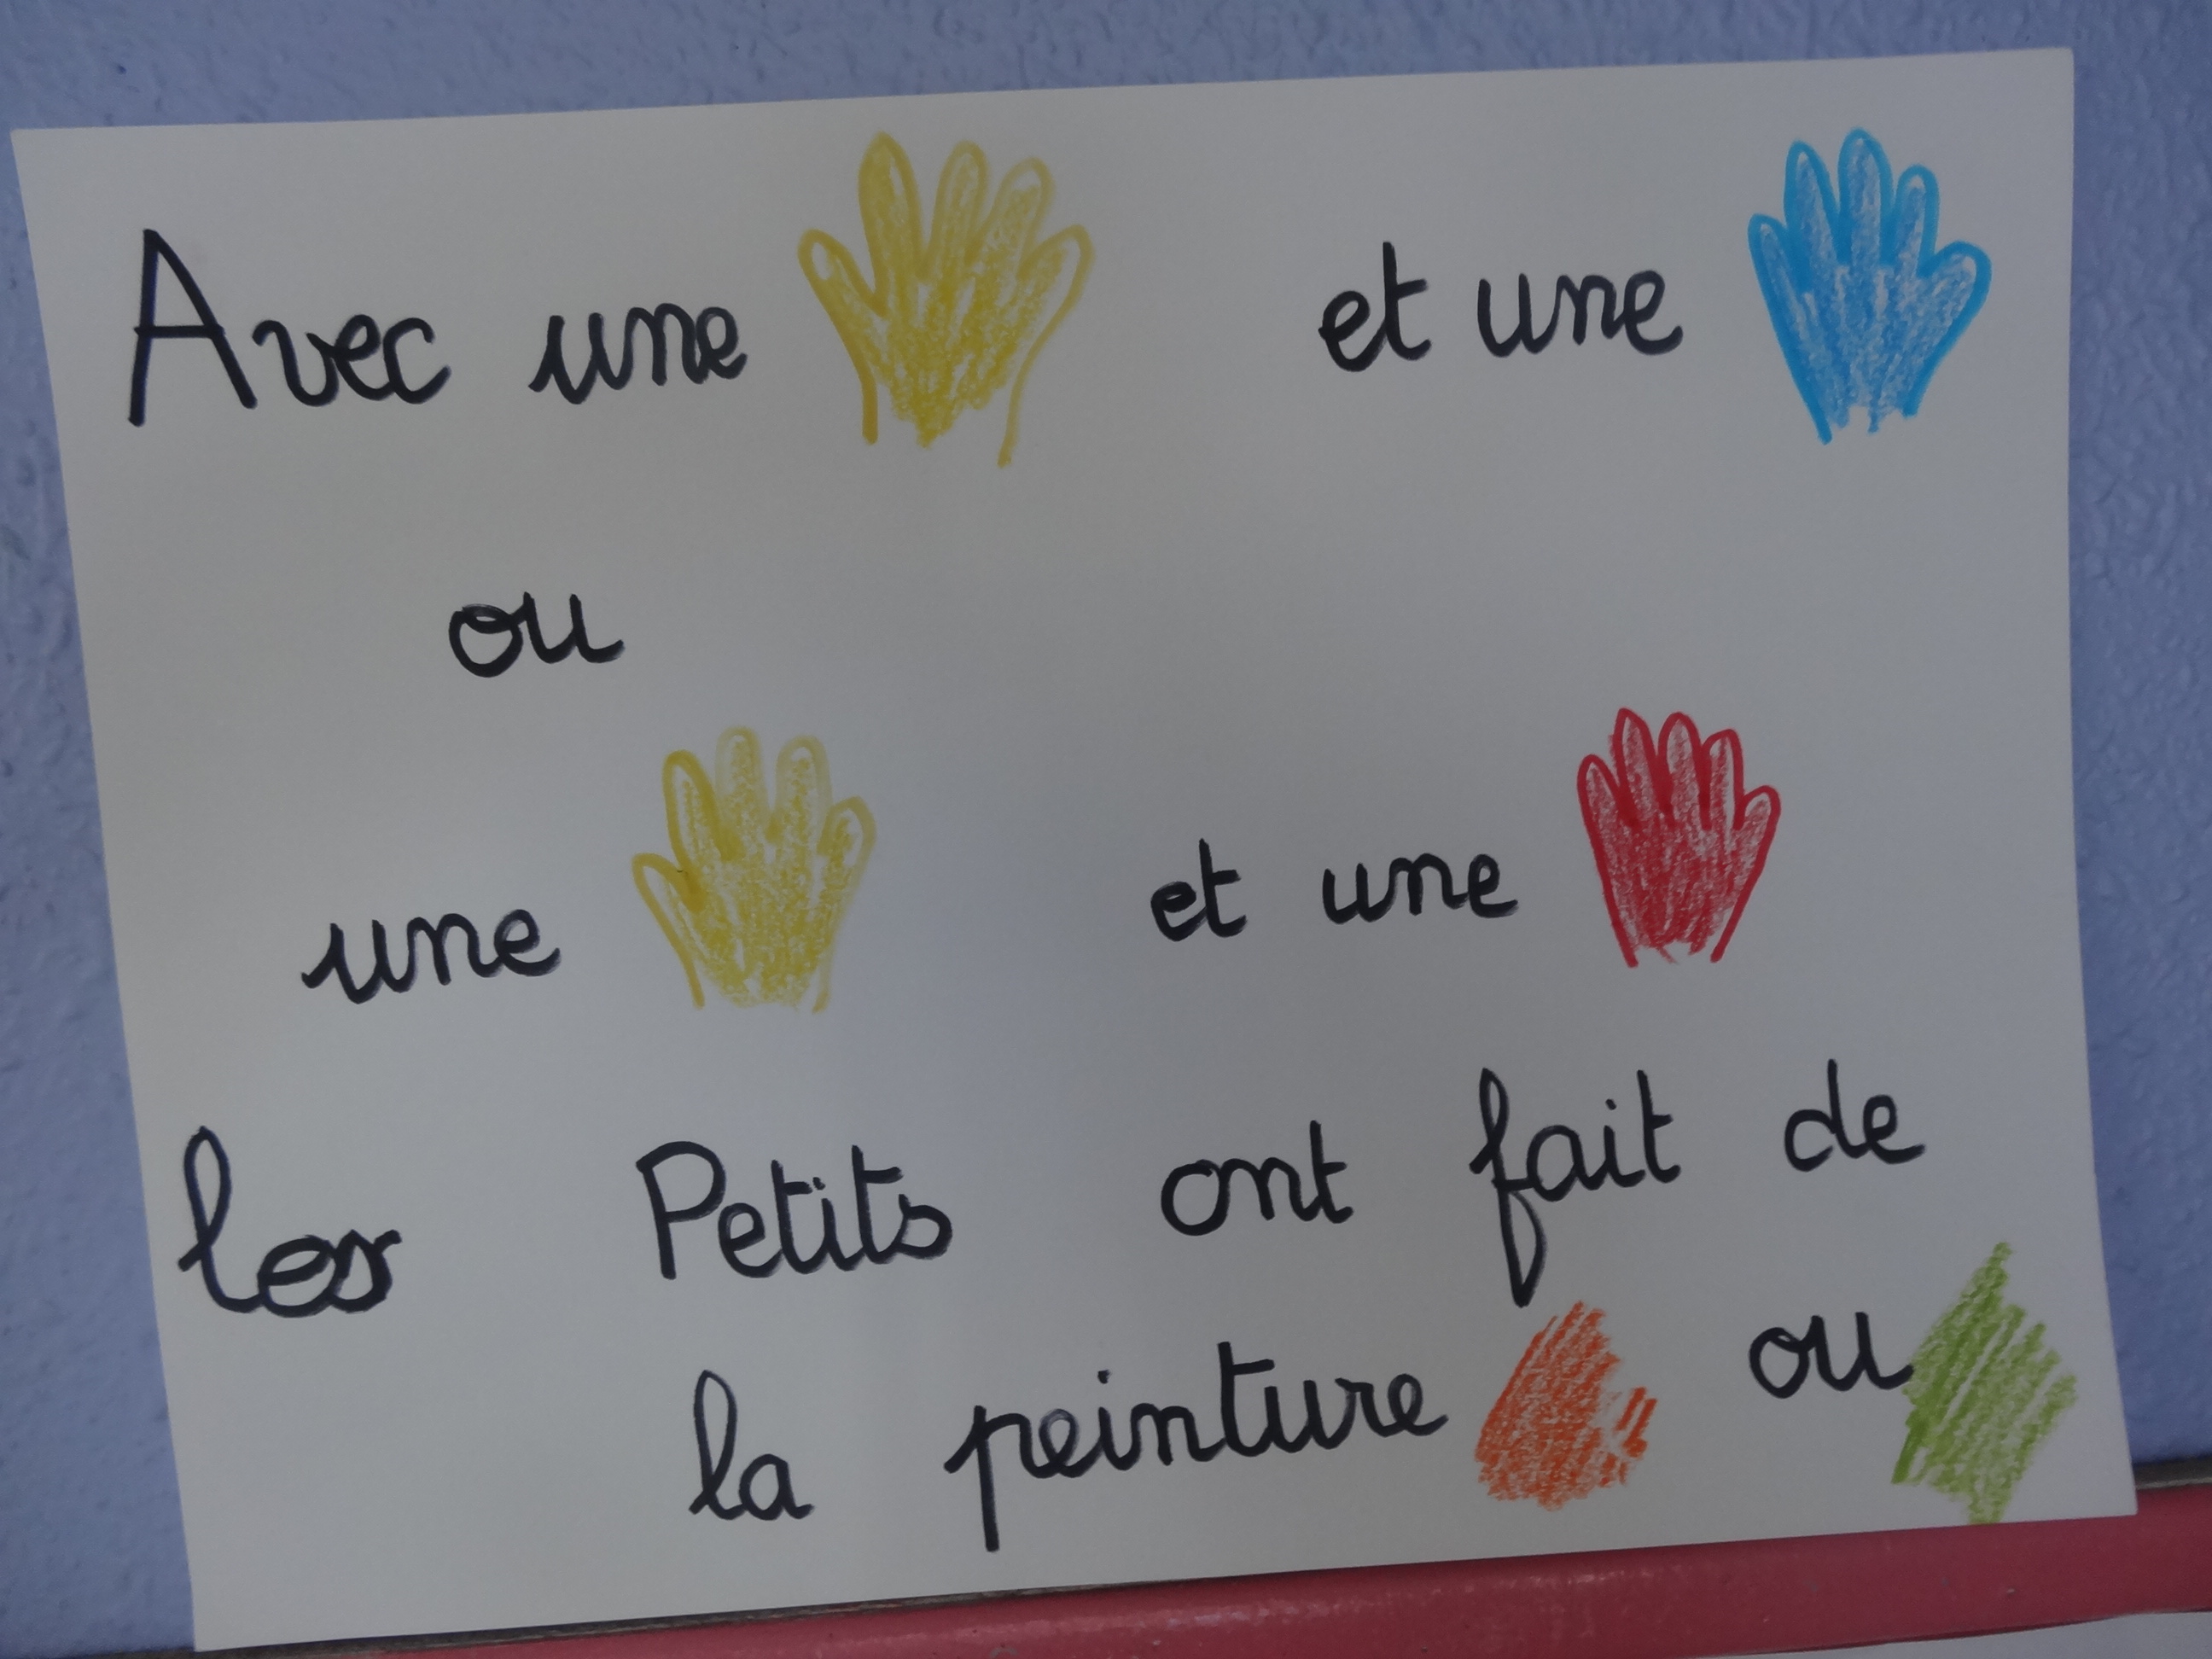 Avec une et une
ou
une et une
les Petits ont fait de
la peinture ou